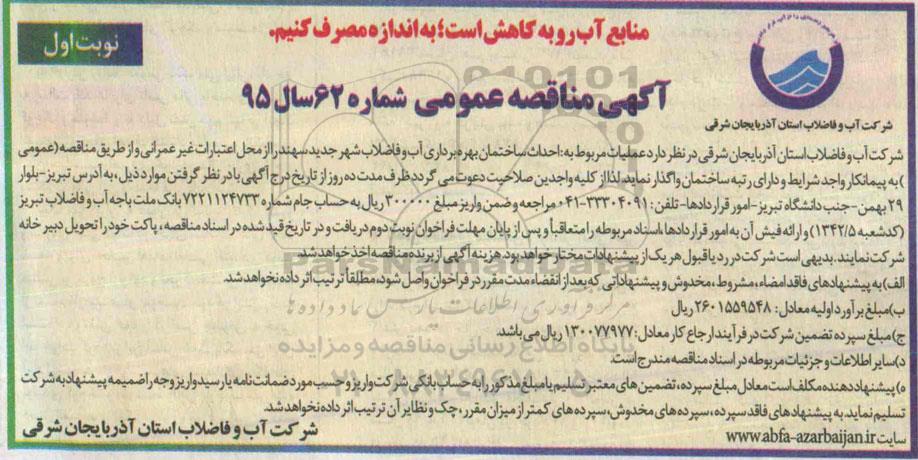 منابع آب رو به کاهش است؛ به اندازه مصرف کنیم.
نوبت اول
آگهی مناقصه عمومی شماره ۶۲ سال ۹۵
شرکت آب و فاضلاب استان آذربایجان شرقی
شرکت آب و فاضلاب استان آذربایجان شرقی در نظر دارد عملیات مربوط به: احداث ساختمان بهره برداری آب و فاضلاب شهر جدید سهند را از محل اعتبارات غیر عمرانی و از طریق مناقصه (عمومی
) به پیمانکار واجد شرایط و دارای رتبه ساختمان واگذار نماید. لذا از کلیه واجدین صلاحیت دعوت می گردد ظرف مدت ده روز از تاریخ درج آگهی با در نظر گرفتن موارد ذیل، به آدرس تبریز- بلوار
۲۹ بهمن- جنب دانشگاه تبریز- امور قراردادها- تلفن: ۳۳۳۰۴۰۹۱-۰۴۱ مراجعه و ضمن واریز مبلغ ۳۰۰۰۰۰ ریال به حساب جام شماره ۷۲۲۱۱۲۴۷۳۳ بانک ملت باجه آب و فاضلاب تبریز
(کد شعبه ۱۳۴۲/۵) و ارائه فیش آن به امور قراردادها، اسناد مربوطه را متعاقباً و پس از پایان مهلت فراخوان نوبت دوم دریافت و در تاریخ قید شده در اسناد مناقصه، پاکت خود را تحویل دبیر خانه
شرکت نمایند. بدیهی است شرکت در رد یا قبول هر یک از پیشنهادات مختار خواهد بود. هزینه آگهی از برنده مناقصه اخذ خواهد شد.
الف) به پیشنهادهای فاقد امضاء، مشروط، مخدوش و پیشنهاداتی که بعد از انقضاء مدت مقرر در فراخوان واصل شود، مطلقاً ترتیب اثر داده نخواهد شد.
ب) مبلغ برآورد اولیه معادل: ۲۶۰۱۵۵۹۵۴۸ ریال
ج) مبلغ سپرده تضمین شرکت در فرآیند ارجاع کار معادل: ۱۳۰۰۷۷۹۷۷ ریال می باشد.
د) سایر اطلاعات و جزئیات مربوطه در اسناد مناقصه مندرج است.
ه) پیشنهاد دهنده مکلف است معادل مبلغ سپرده، تضمین های معتبر تسلیم یا مبلغ مذکور را به حساب بانکی شرکت واریز و حسب مورد ضمانت نامه یا رسید واریز وجه را ضمیمه پیشنهاد به شرکت
تسلیم نماید. به پیشنهادهای فاقد سپرده، سپرده های مخدوش، سپرده های کمتر از میزان مقرر، چک و نظایر آن ترتیب اثر داده نخواهد شد.
سایت www.abfa-azarbaijan.ir
شرکت آب و فاضلاب استان آذربایجان شرقی
مرکز فرآوری اطلاعات پارس نماد داده ها
پایگاه اطلاع رسانی مناقصه و مزایده